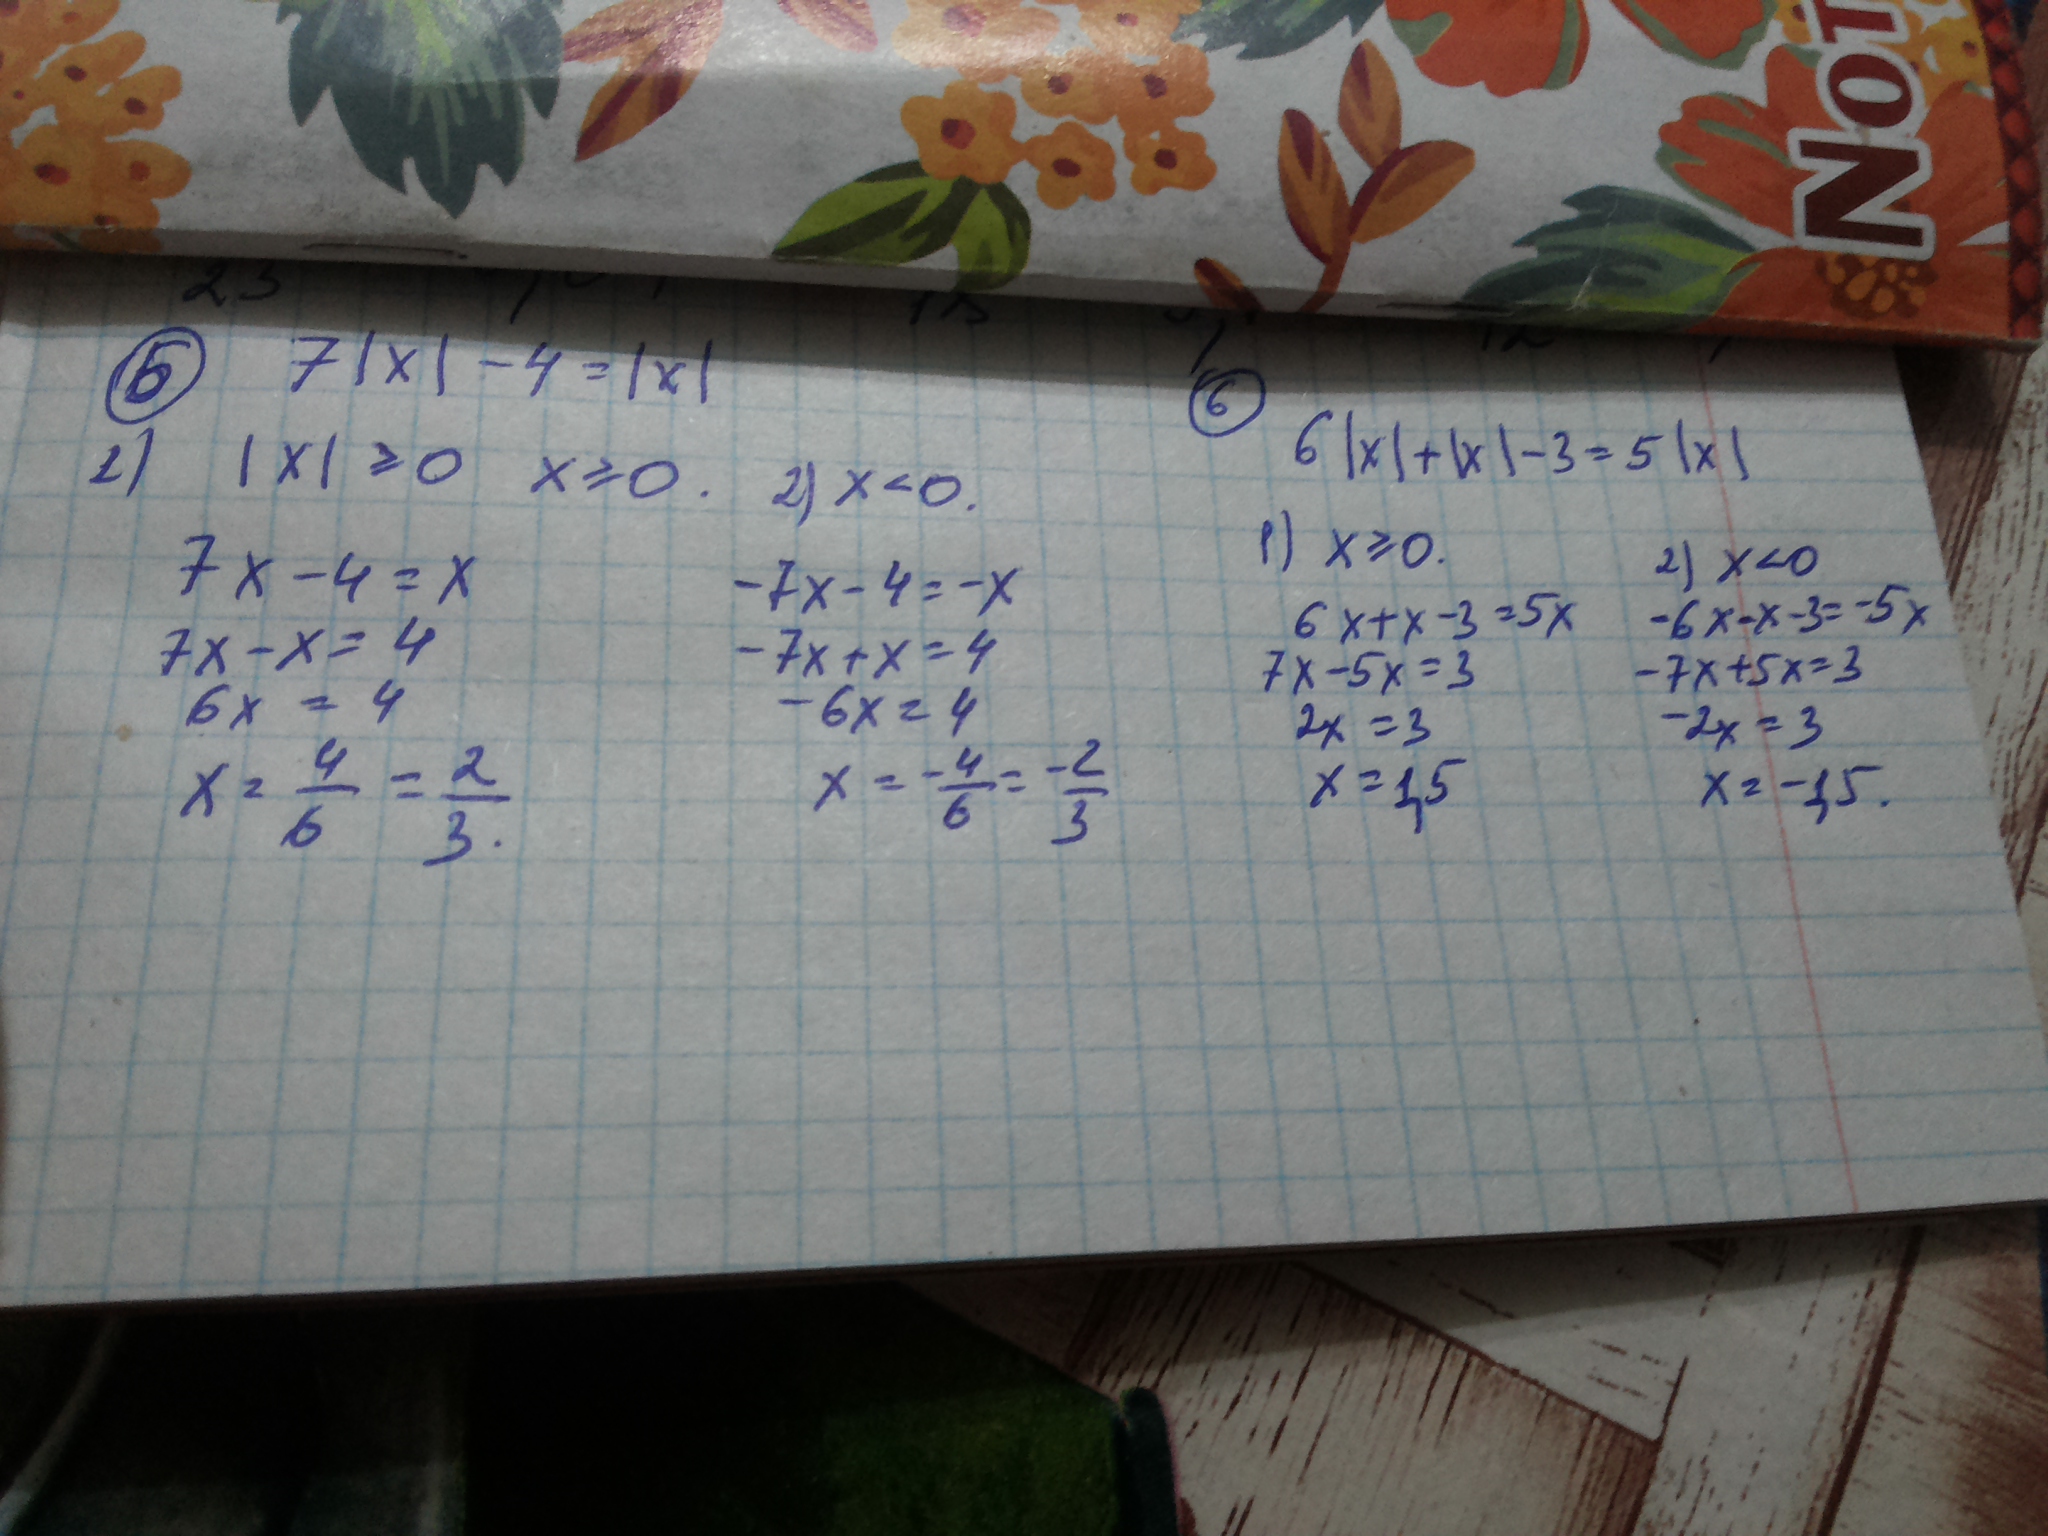 NOT
23
5 7|x| - 4 = |x|
1) |x| ≥ 0 x ≥ 0.
7x - 4 = x
7x - x = 4
6x = 4
x = 4/6 = 2/3.
2) x < 0.
-7x - 4 = -x
-7x + x = 4
-6x = 4
x = -4/6 = -2/3
6
6|x| + |x| - 3 = 5|x|
1) x ≥ 0.
6x + x - 3 = 5x
7x - 5x = 3
2x = 3
x = 1,5
2) x < 0
-6x - x - 3 = -5x
-7x + 5x = 3
-2x = 3
x = -1,5.